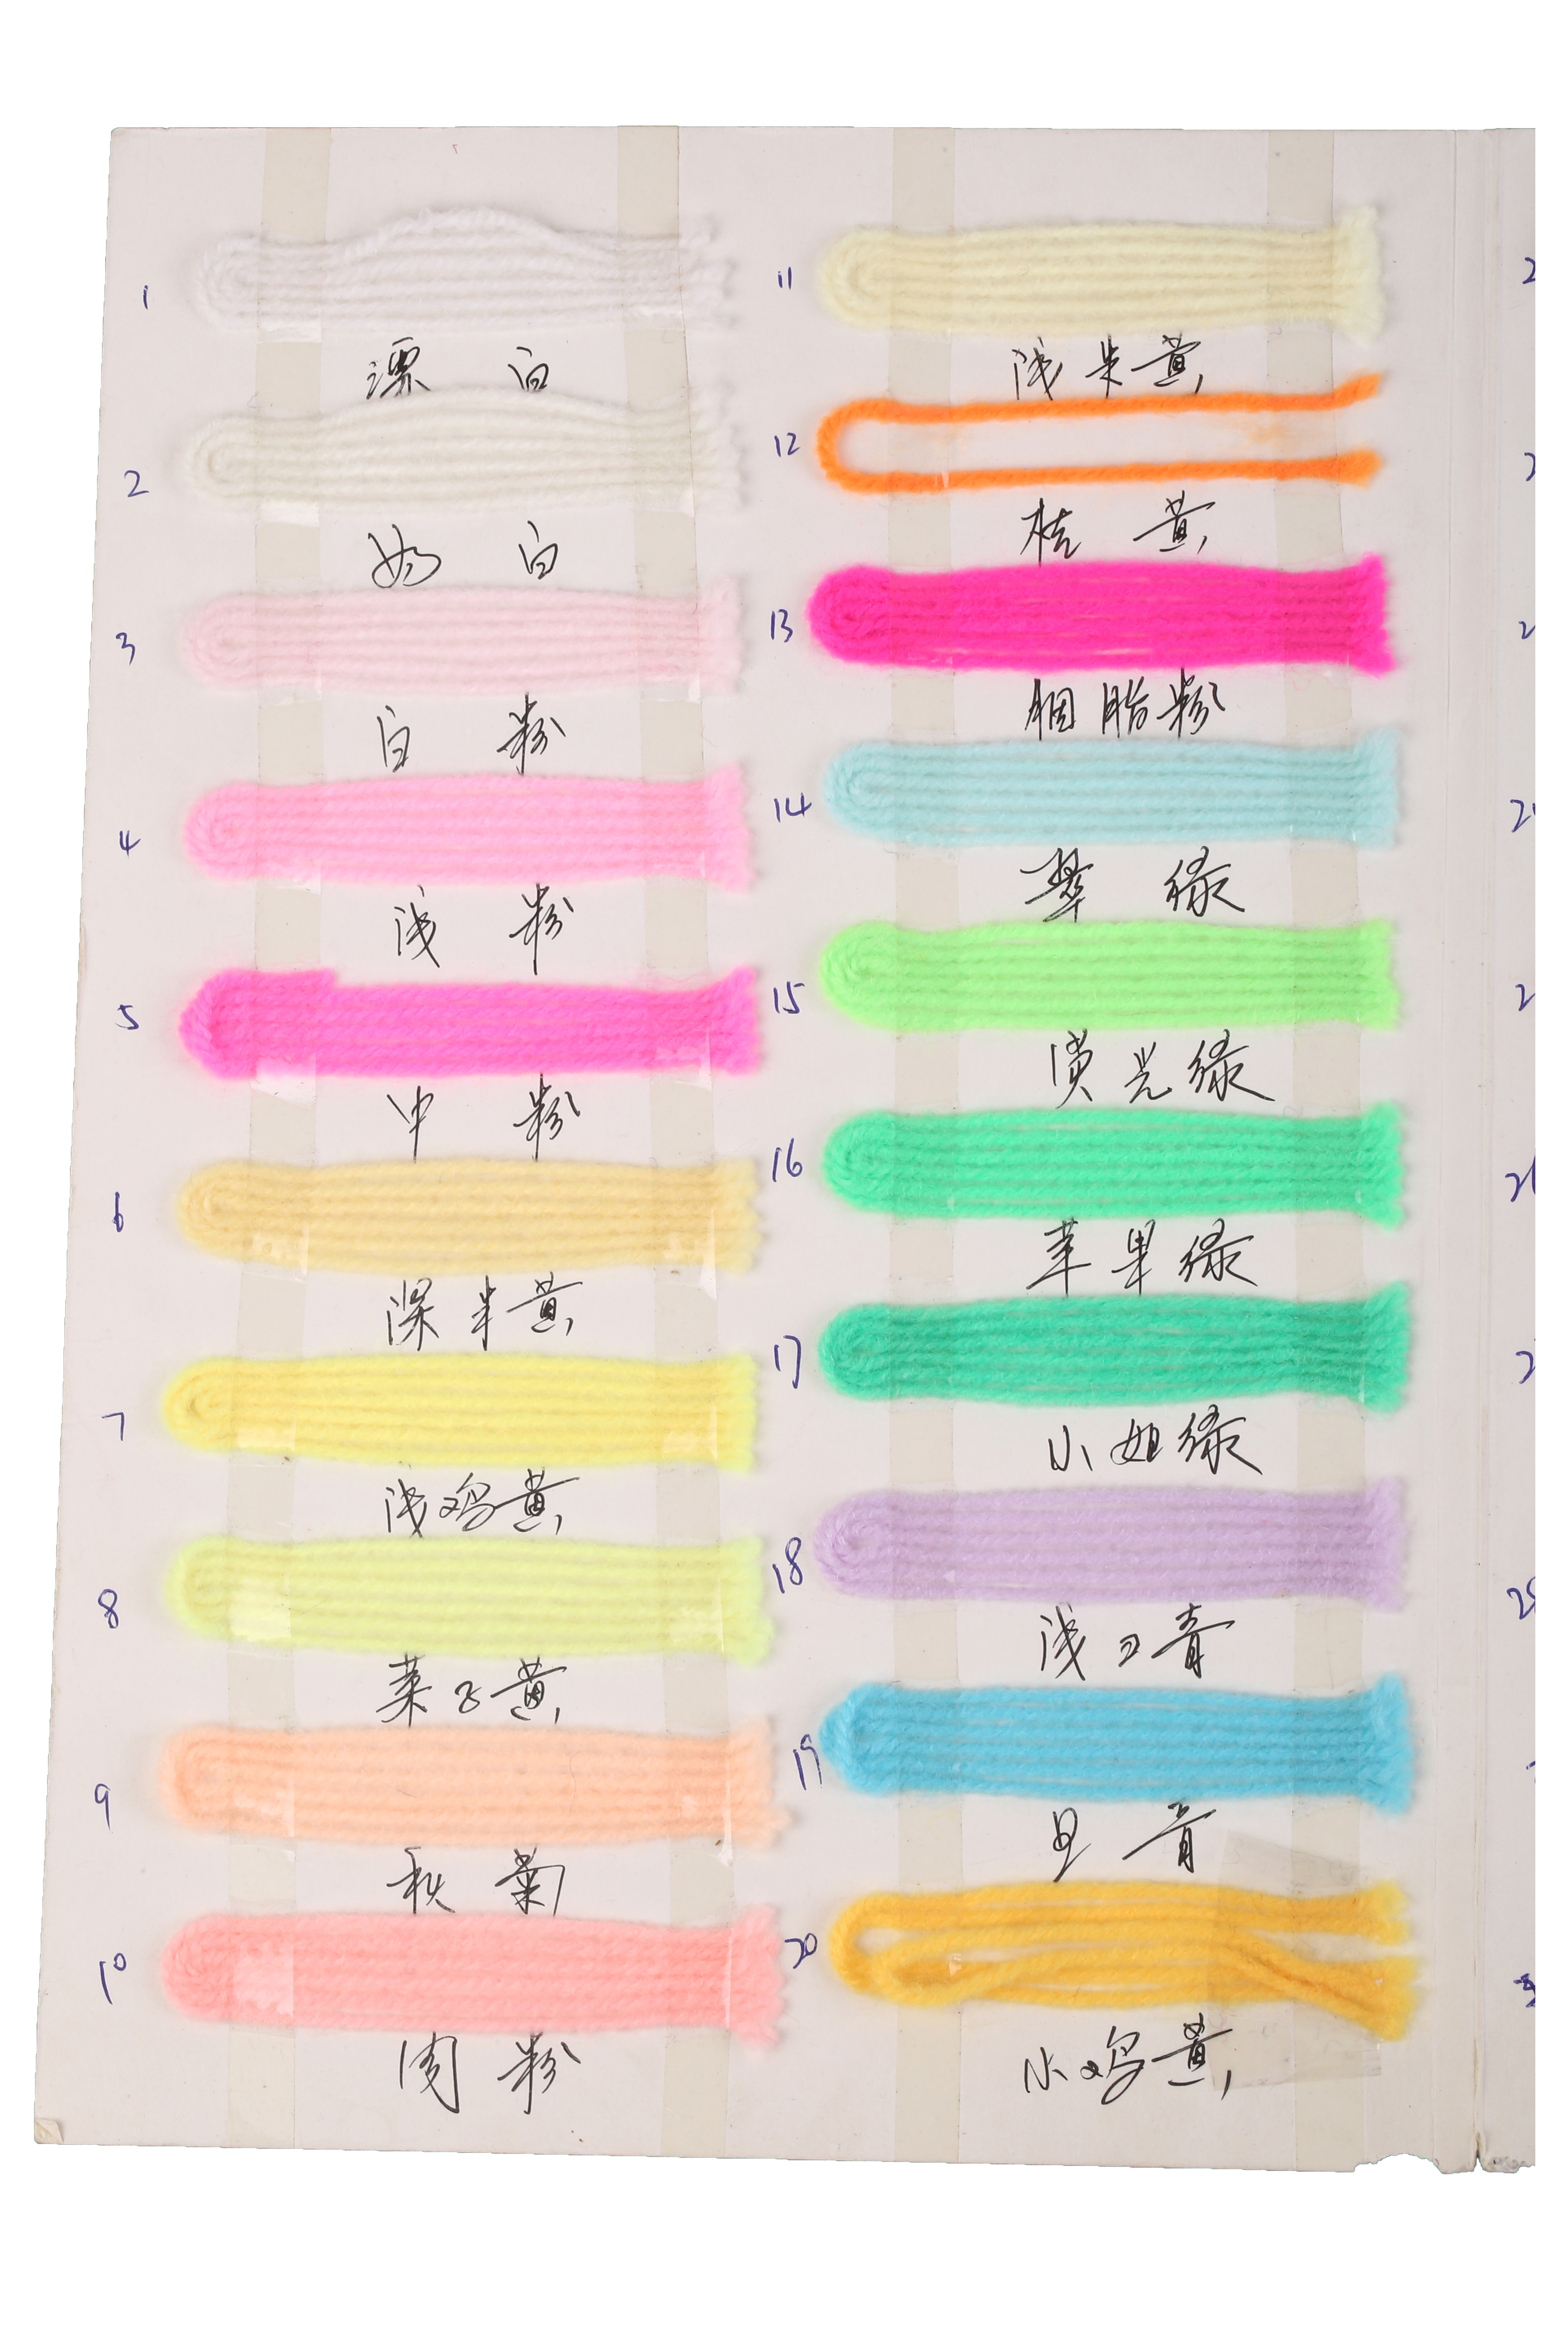 1
漂 白
2
奶 白
3
白 粉
4
浅 粉
5
中 粉
6
深米黄
7
浅鸡黄
8
菜子黄
9
秋 菊
10
肉 粉
11
浅米黄
12
桔 黄
13
胭脂粉
14
翠 绿
15
荧光绿
16
苹果绿
17
小姐绿
18
浅卫青
19
旦 青
20
小鸡黄